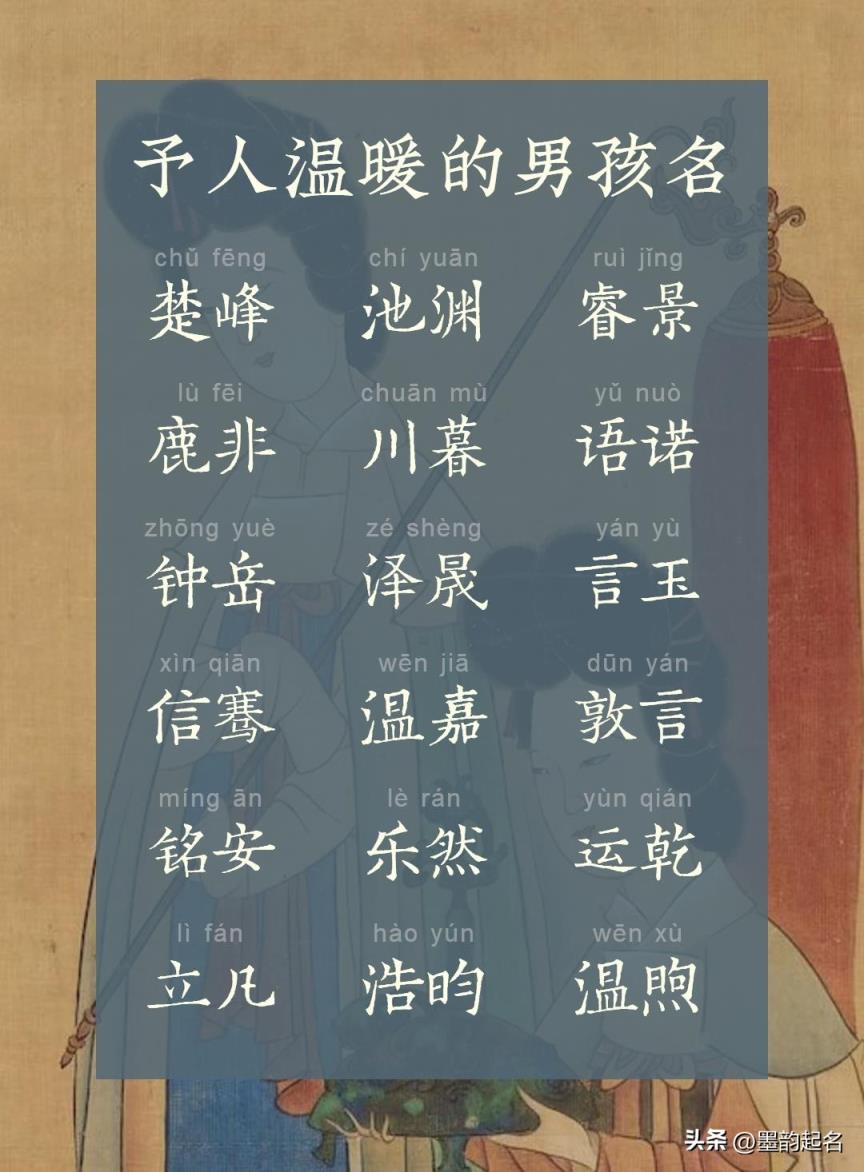 予人温暖的男孩名
chǔ fēng chí yuān ruì jǐng
楚峰 池渊 睿景
lù fēi chuān mù yǔ nuò
鹿非 川暮 语诺
zhōng yuè zé shèng yán yù
钟岳 泽晟 言玉
xìn qiān wēn jiā dūn yán
信骞 温嘉 敦言
míng ān lè rán yùn qián
铭安 乐然 运乾
lì fán hào yún wēn xù
立凡 浩昀 温煦
头条 @墨韵起名